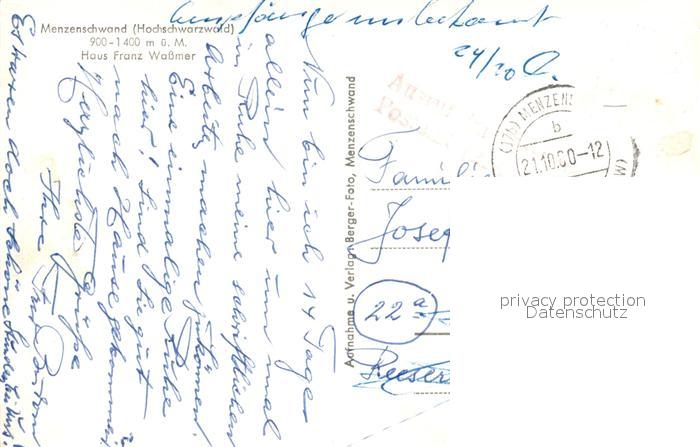 Menzenschwand (Hochschwarzwald)
900-1400 m ü. M.
Haus Franz Waßmer
Empfänger unbekannt
24/10
Nun bin ich 14 Tage
allein hier um mal
in Ruhe meine schriftlichen
Arbeiten machen zu können.
Eine einmalige Ruhe
hier! Sind Sie gut
nach Hause gekommen?
Herzlichste Grüße
Ihre
Es waren doch schöne
Aufnahme u. Verlag Berger-Foto, Menzenschwand
(17b) MENZEN
b
21.10.60-12
Famili
Josef
22a
privacy protection
Datenschutz